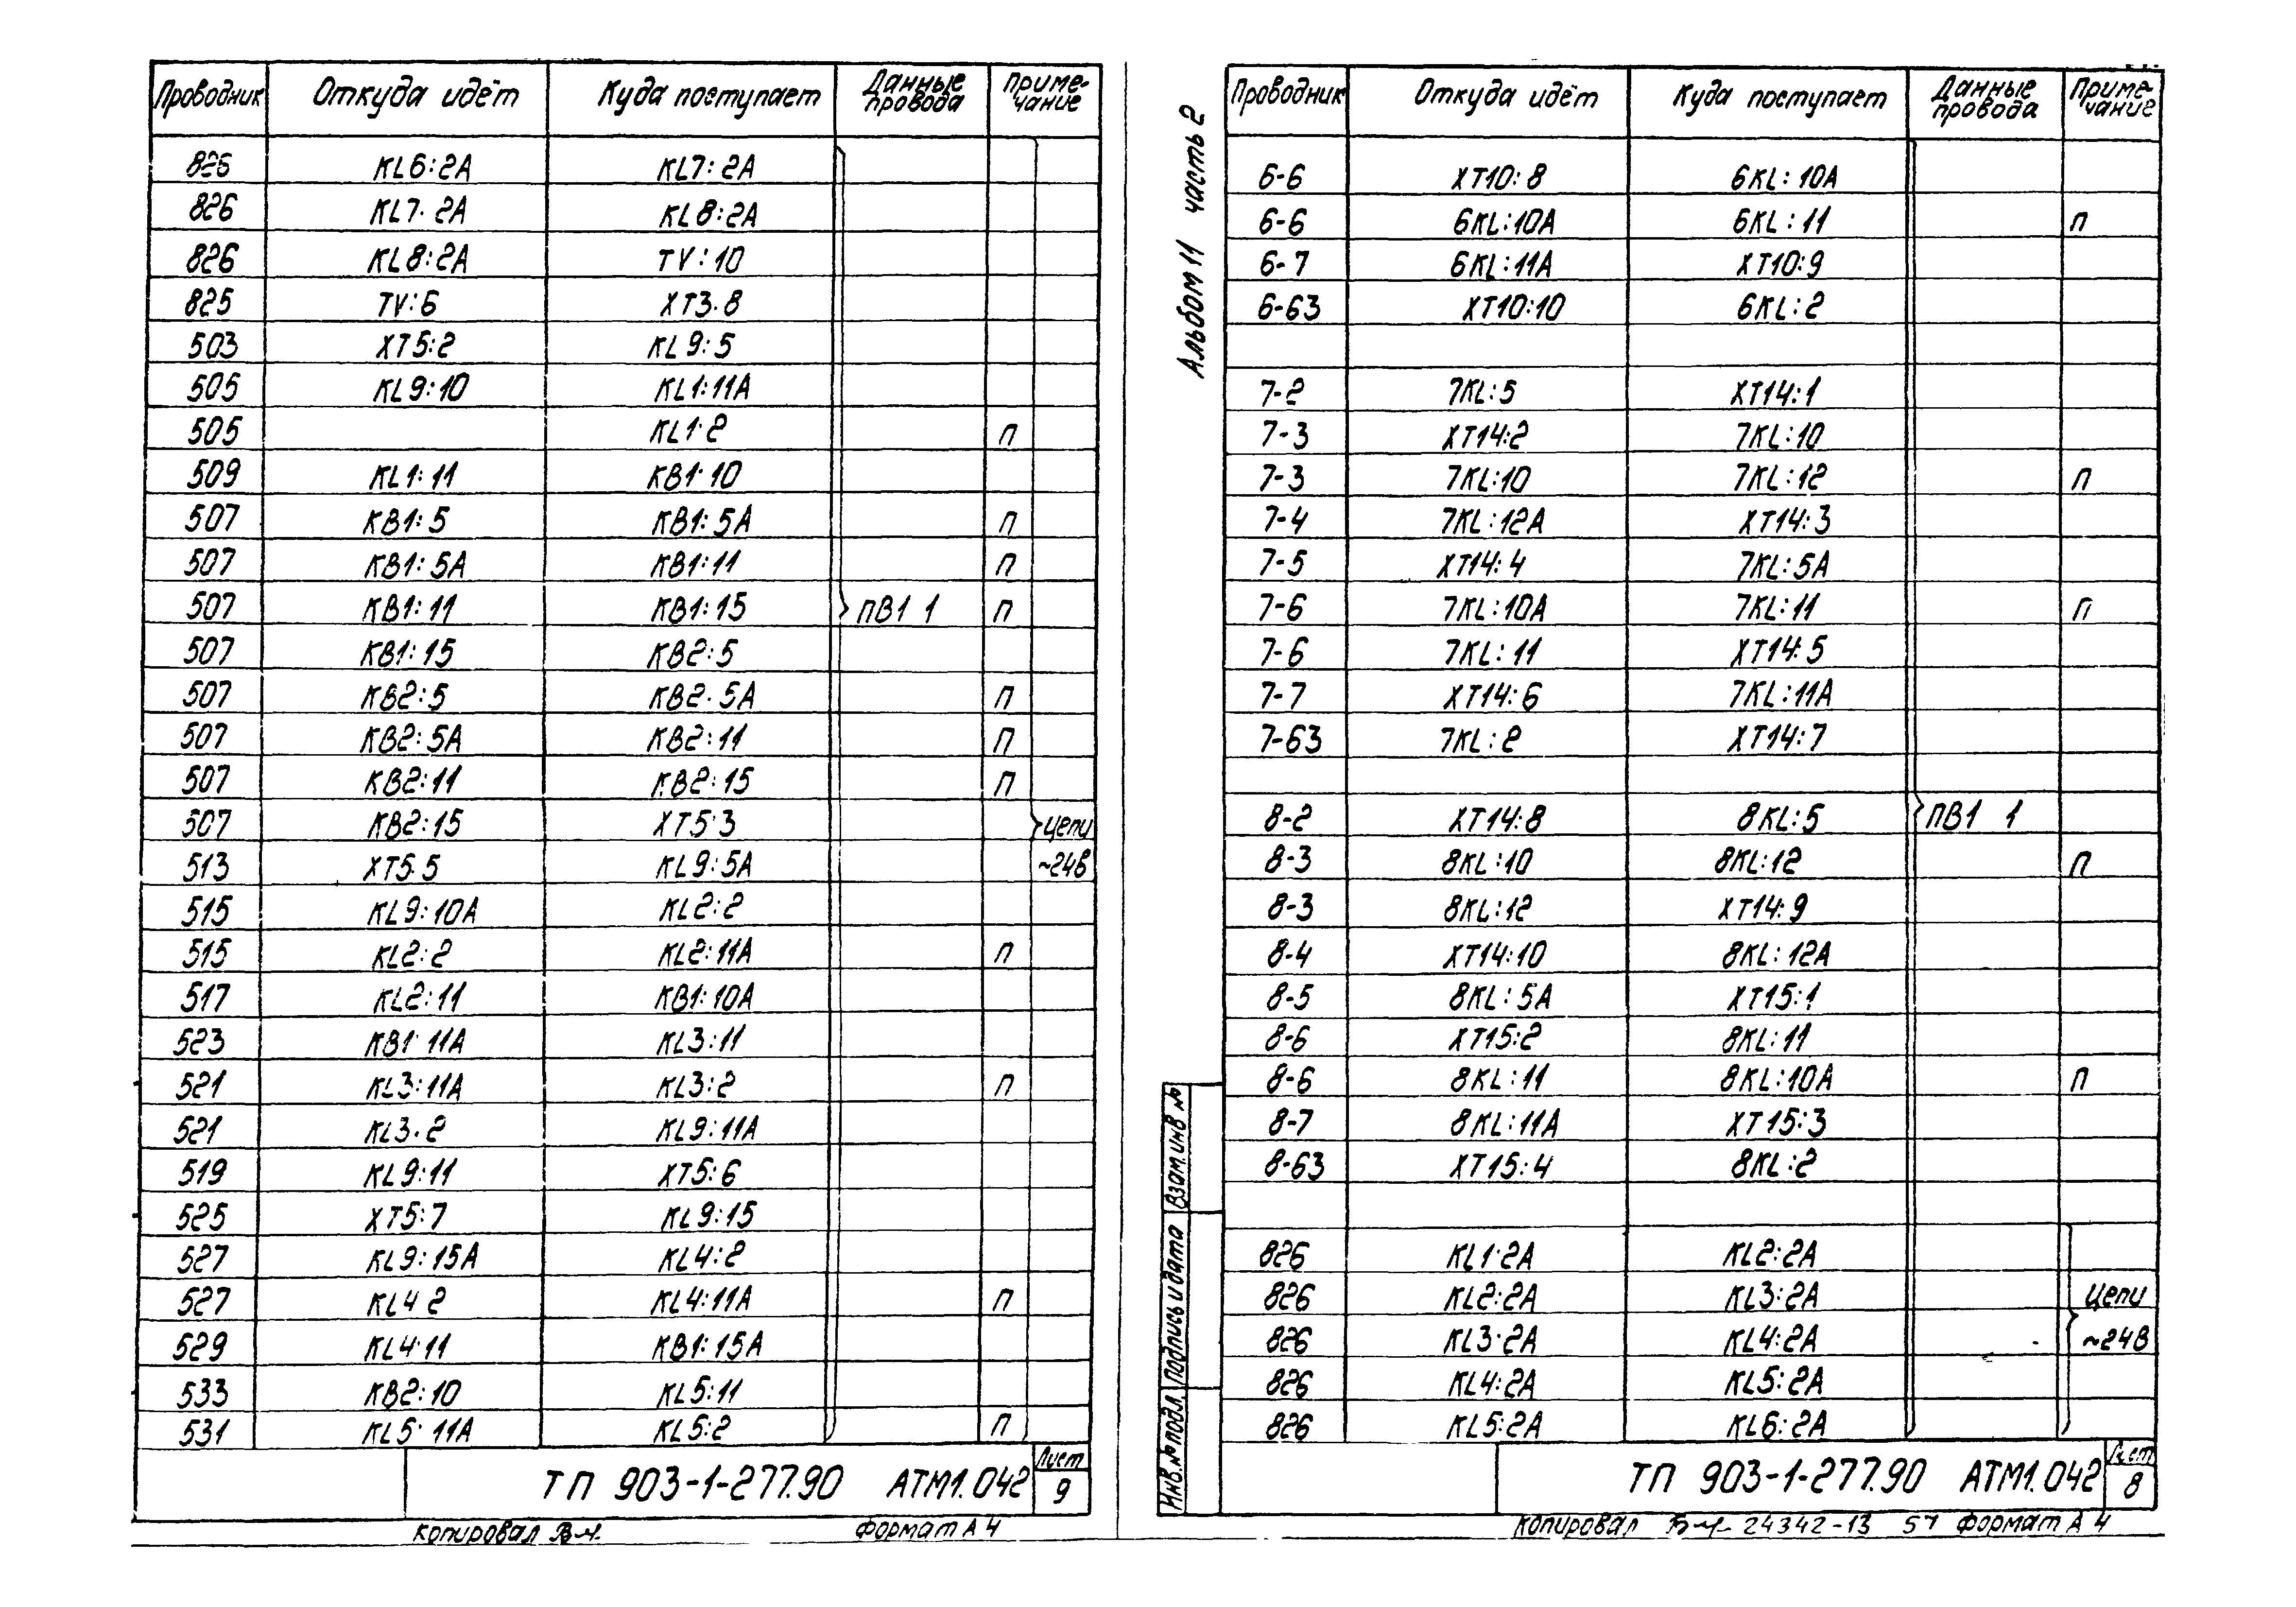 Проводник Откуда идёт Куда поступает Данные провода Примечание
826 KL6:2A KL7:2A
826 KL7.2A KL8:2A
826 KL8:2A TV:10
825 TV:6 XT3.8
503 XT5:2 KL9:5
505 KL9:10 KL1:11A
505 KL1.2 П
509 KL1:11 KB1.10
507 KB1:5 KB1:5A П
507 KB1:5A KB1:11 П
507 KB1:11 KB1:15 ПВ1 1 П
507 KB1:15 KB2:5
507 KB2:5 KB2.5A П
507 KB2:5A KB2:11 П
507 KB2:11 KB2:15 П
507 KB2:15 XT5.3 Цепи
513 XT5.5 KL9:5A ~24В
515 KL9:10A KL2:2
515 KL2:2 KL2:11A П
517 KL2:11 KB1:10A
523 KB1.11A KL3:11
521 KL3:11A KL3:2 П
521 KL3.2 KL9:11A
519 KL9:11 XT5:6
525 XT5:7 KL9:15
527 KL9:15A KL4:2
527 KL4 2 KL4:11A П
529 KL4.11 KB1:15A
533 KB2:10 KL5:11
531 KL5.11A KL5:2 П
ТП 903-1-277.90 АТМ1.042 Лист 9
Копировал Формат А4
Альбом 11 часть 2
Проводник Откуда идёт Куда поступает Данные провода Примечание
6-6 XT10:8 6KL:10A
6-6 6KL:10A 6KL:11 П
6-7 6KL:11A XT10:9
6-63 XT10:10 6KL:2
7-2 7KL:5 XT14:1
7-3 XT14:2 7KL:10
7-3 7KL:10 7KL:12 П
7-4 7KL:12A XT14:3
7-5 XT14:4 7KL:5A
7-6 7KL:10A 7KL:11 П
7-6 7KL:11 XT14:5
7-7 XT14:6 7KL:11A
7-63 7KL:2 XT14:7
8-2 XT14:8 8KL:5 ПВ1 1
8-3 8KL:10 8KL:12 П
8-3 8KL:12 XT14:9
8-4 XT14:10 8KL:12A
8-5 8KL:5A XT15:1
8-6 XT15:2 8KL:11
8-6 8KL:11 8KL:10A П
8-7 8KL:11A XT15:3
8-63 XT15:4 8KL:2
826 KL1.2A KL2:2A
826 KL2:2A KL3:2A Цепи
826 KL3.2A KL4:2A ~24В
826 KL4:2A KL5:2A
826 KL5:2A KL6:2A
Взам.инв №
Подпись и дата
Инв.№ подл.
ТП 903-1-277.90 АТМ1.042 Лист 8
Копировал 24342-13 Формат А4